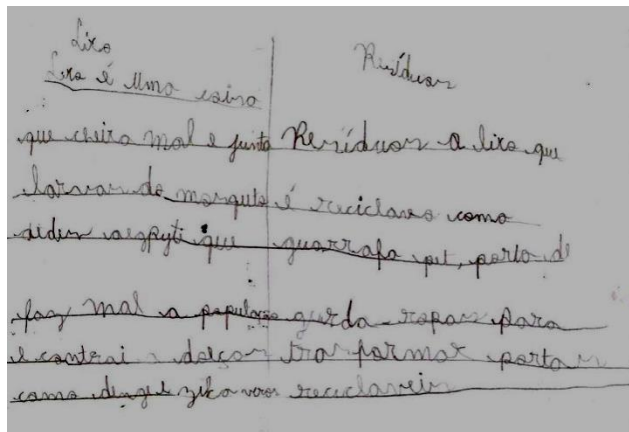 Lixo
Lixo é uma coisa
que cheira mal e junta
larvas do mosquito
aedes aegpyti que
faz mal a população
e contrai doeças
como denge e zika viros
Resíduos
Resíduos a lixo que
é reciclavo como
guarrafa pet, porto de
gurda ropas para
transformar portas
reciclaveis